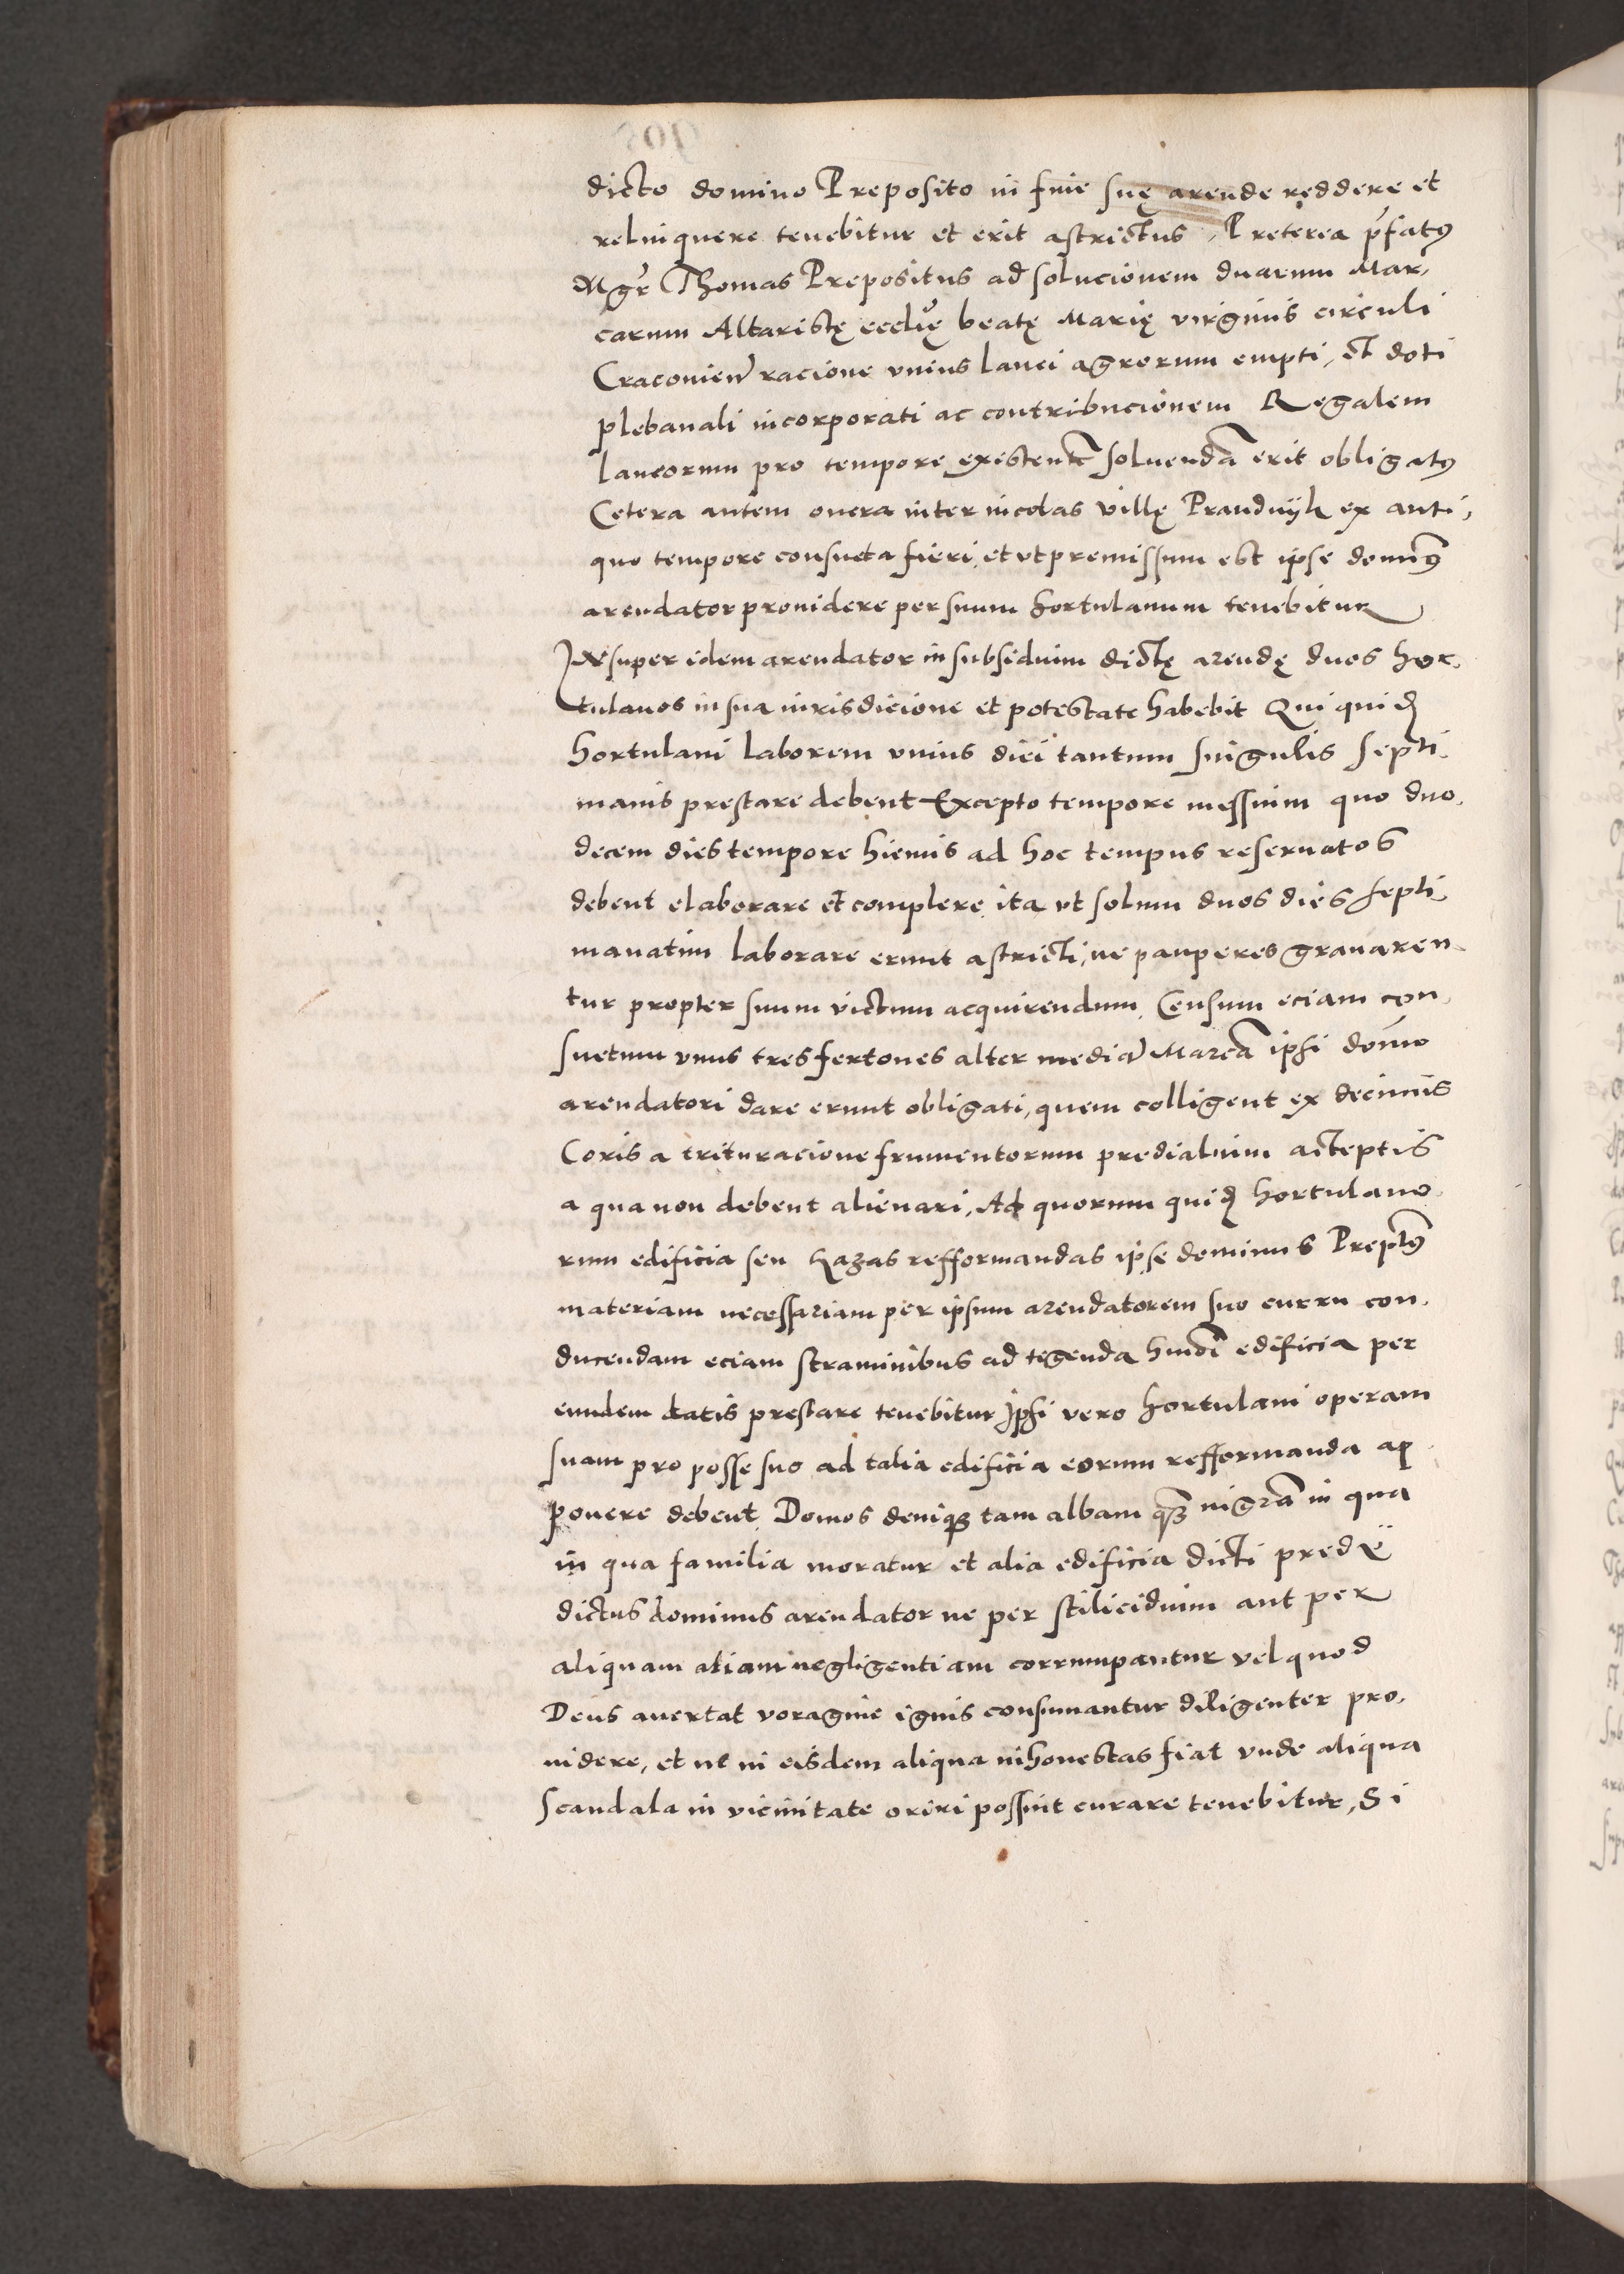 dicto domino Preposito in fine suę arende reddere et
relinquere tenebitur et erit astrictus, Preterea p̄fatꝰ
Mgr̄ Thomas Prepositus ad solucionem duarum Mar,
carum Altaristę eccl̄ię beatę Marię virginis circuli
Cracovien̄ racione vnius lanei agrorum empti, et doti
plebanali incorporati ac contribucionem Regalem
laneorum pro tempore existen̄t soluendā erit obligatꝰ
Cetera autem onera inter incolas villę Prandnijk ex anti,
quo tempore consueta fieri, et vt premissum est ipse dominꝰ
arendator prouidere per suum hortulanum tenebitur
Insuper idem arendator in subsidium dictę arendę duos hor,
tulanos in sua iurisdicione et potestate habebit Qui quid̄
hortulani laborem vnius diei tantum singulis septi,
manis prestare debent Excepto tempore messium quo duo,
decem dies tempore hiemis ad hoc tempus reseruatos
debent elaborare et complere, ita vt solum duos dies septi,
manatim laborare erunt astricti, ne pauperes grauaren
tur propter suum victum acquirendum, Censum eciam con,
suetum vnus tres fertones alter mediā Marcā ipsi domīo
arendatori dare erunt obligati, quem colligent ex decimis
Coris a trituracione frumentorum predialium acceptis
a qua non debent alienari, Ad quorum quid̄ hortulano,
rum edificia seu kazas refformandas ipse dominus Prepꝰ
materiam necessariam per ipsum arendatorem suo curru con,
ducendam eciam straminibus ad tegenda hmōi edificia per
eundem datis prestare tenebitur Ipsi vero hortulani operam
suam pro posse suo ad talia edificia eorum refformanda ap
ponere debent, Domos deniqꝫ tam albam qꝫ nigrā in qua
in qua familia moratur et alia edificia dicti predij
dictus dominus arendator ne per stilicidium aut per
aliquam aliam negligentiam corrumpantur vel quod
Deus auertat voragine ignis consumantur diligenter pro,
uidere, et ne in eisdem aliqua inhonestas fiat vnde aliqua
scandala in vicinitate oriri possint curare tenebitur, Si